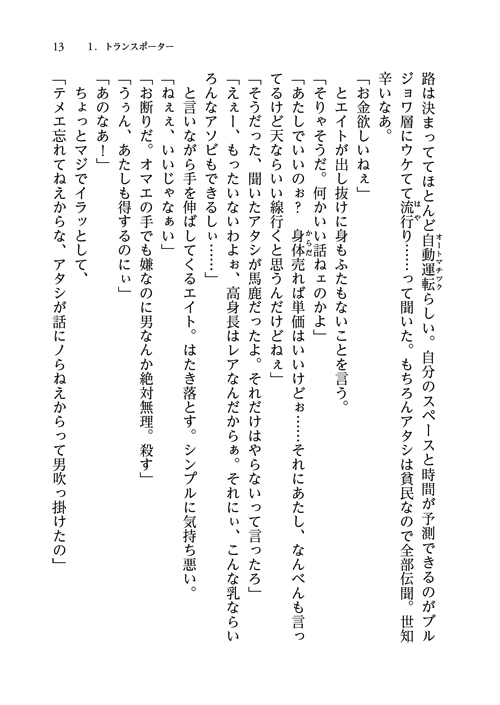 13　1．トランスポーター
路は決まっててほとんど自動運転らしい。自分のスペースと時間が予測できるのがブル
ジョワ層にウケてて流行り……って聞いた。もちろんアタシは貧民なので全部伝聞。世知
辛いなあ。
「お金欲しいねぇ」
　とエイトが出し抜けに身もふたもないことを言う。
「そりゃそうだ。何かいい話ねェのかよ」
「あたしでいいのぉ？　身体売れば単価はいいけどぉ……それにあたし、なんべんも言っ
てるけど天ならいい線行くと思うんだけどねぇ」
「そうだった、聞いたアタシが馬鹿だったよ。それだけはやらないって言ったろ」
「えぇー、もったいないわよぉ、高身長はレアなんだからぁ。それにぃ、こんな乳ならい
ろんなアソビもできるしぃ……」
　と言いながら手を伸ばしてくるエイト。はたき落とす。シンプルに気持ち悪い。
「ねぇぇ、いいじゃなぁい」
「お断りだ。オマエの手でも嫌なのに男なんか絶対無理。殺す」
「うぅん、あたしも得するのにぃ」
「あのなあ！」
　ちょっとマジでイラッとして、
「テメエ忘れてねえからな、アタシが話にノらねえからって男吹っ掛けたの」
オートマチック
はや
からだ